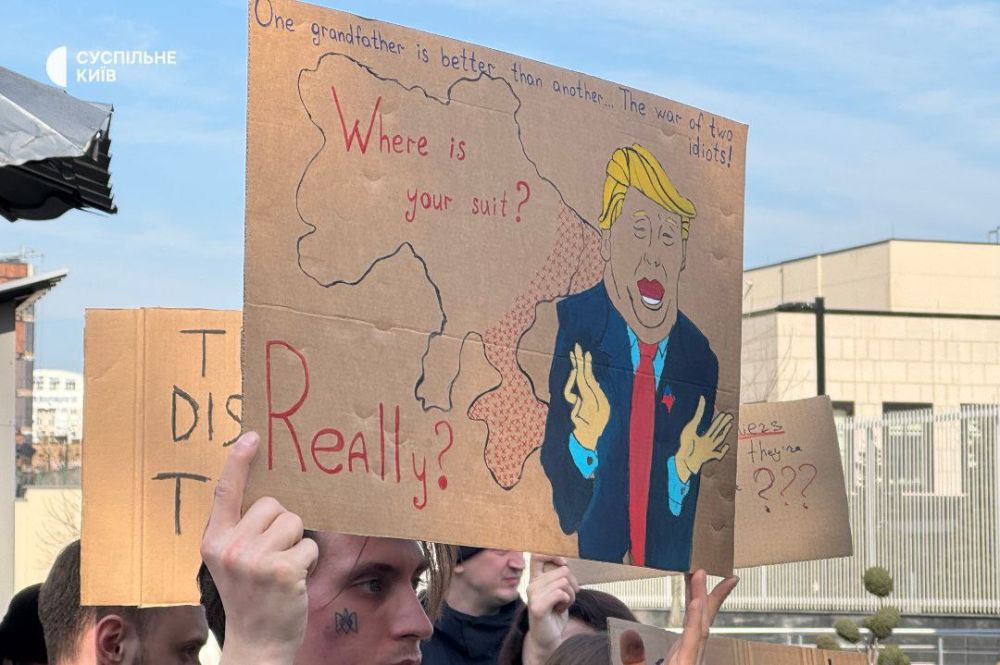 СУСПІЛЬНЕ
КИЇВ
One grandfather is better than another... The war of two
idiots!
Where is
your suit?
Really?
T
DIS
T
they're
???